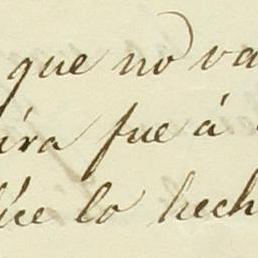 que no va
ira fue á
lice lo hech